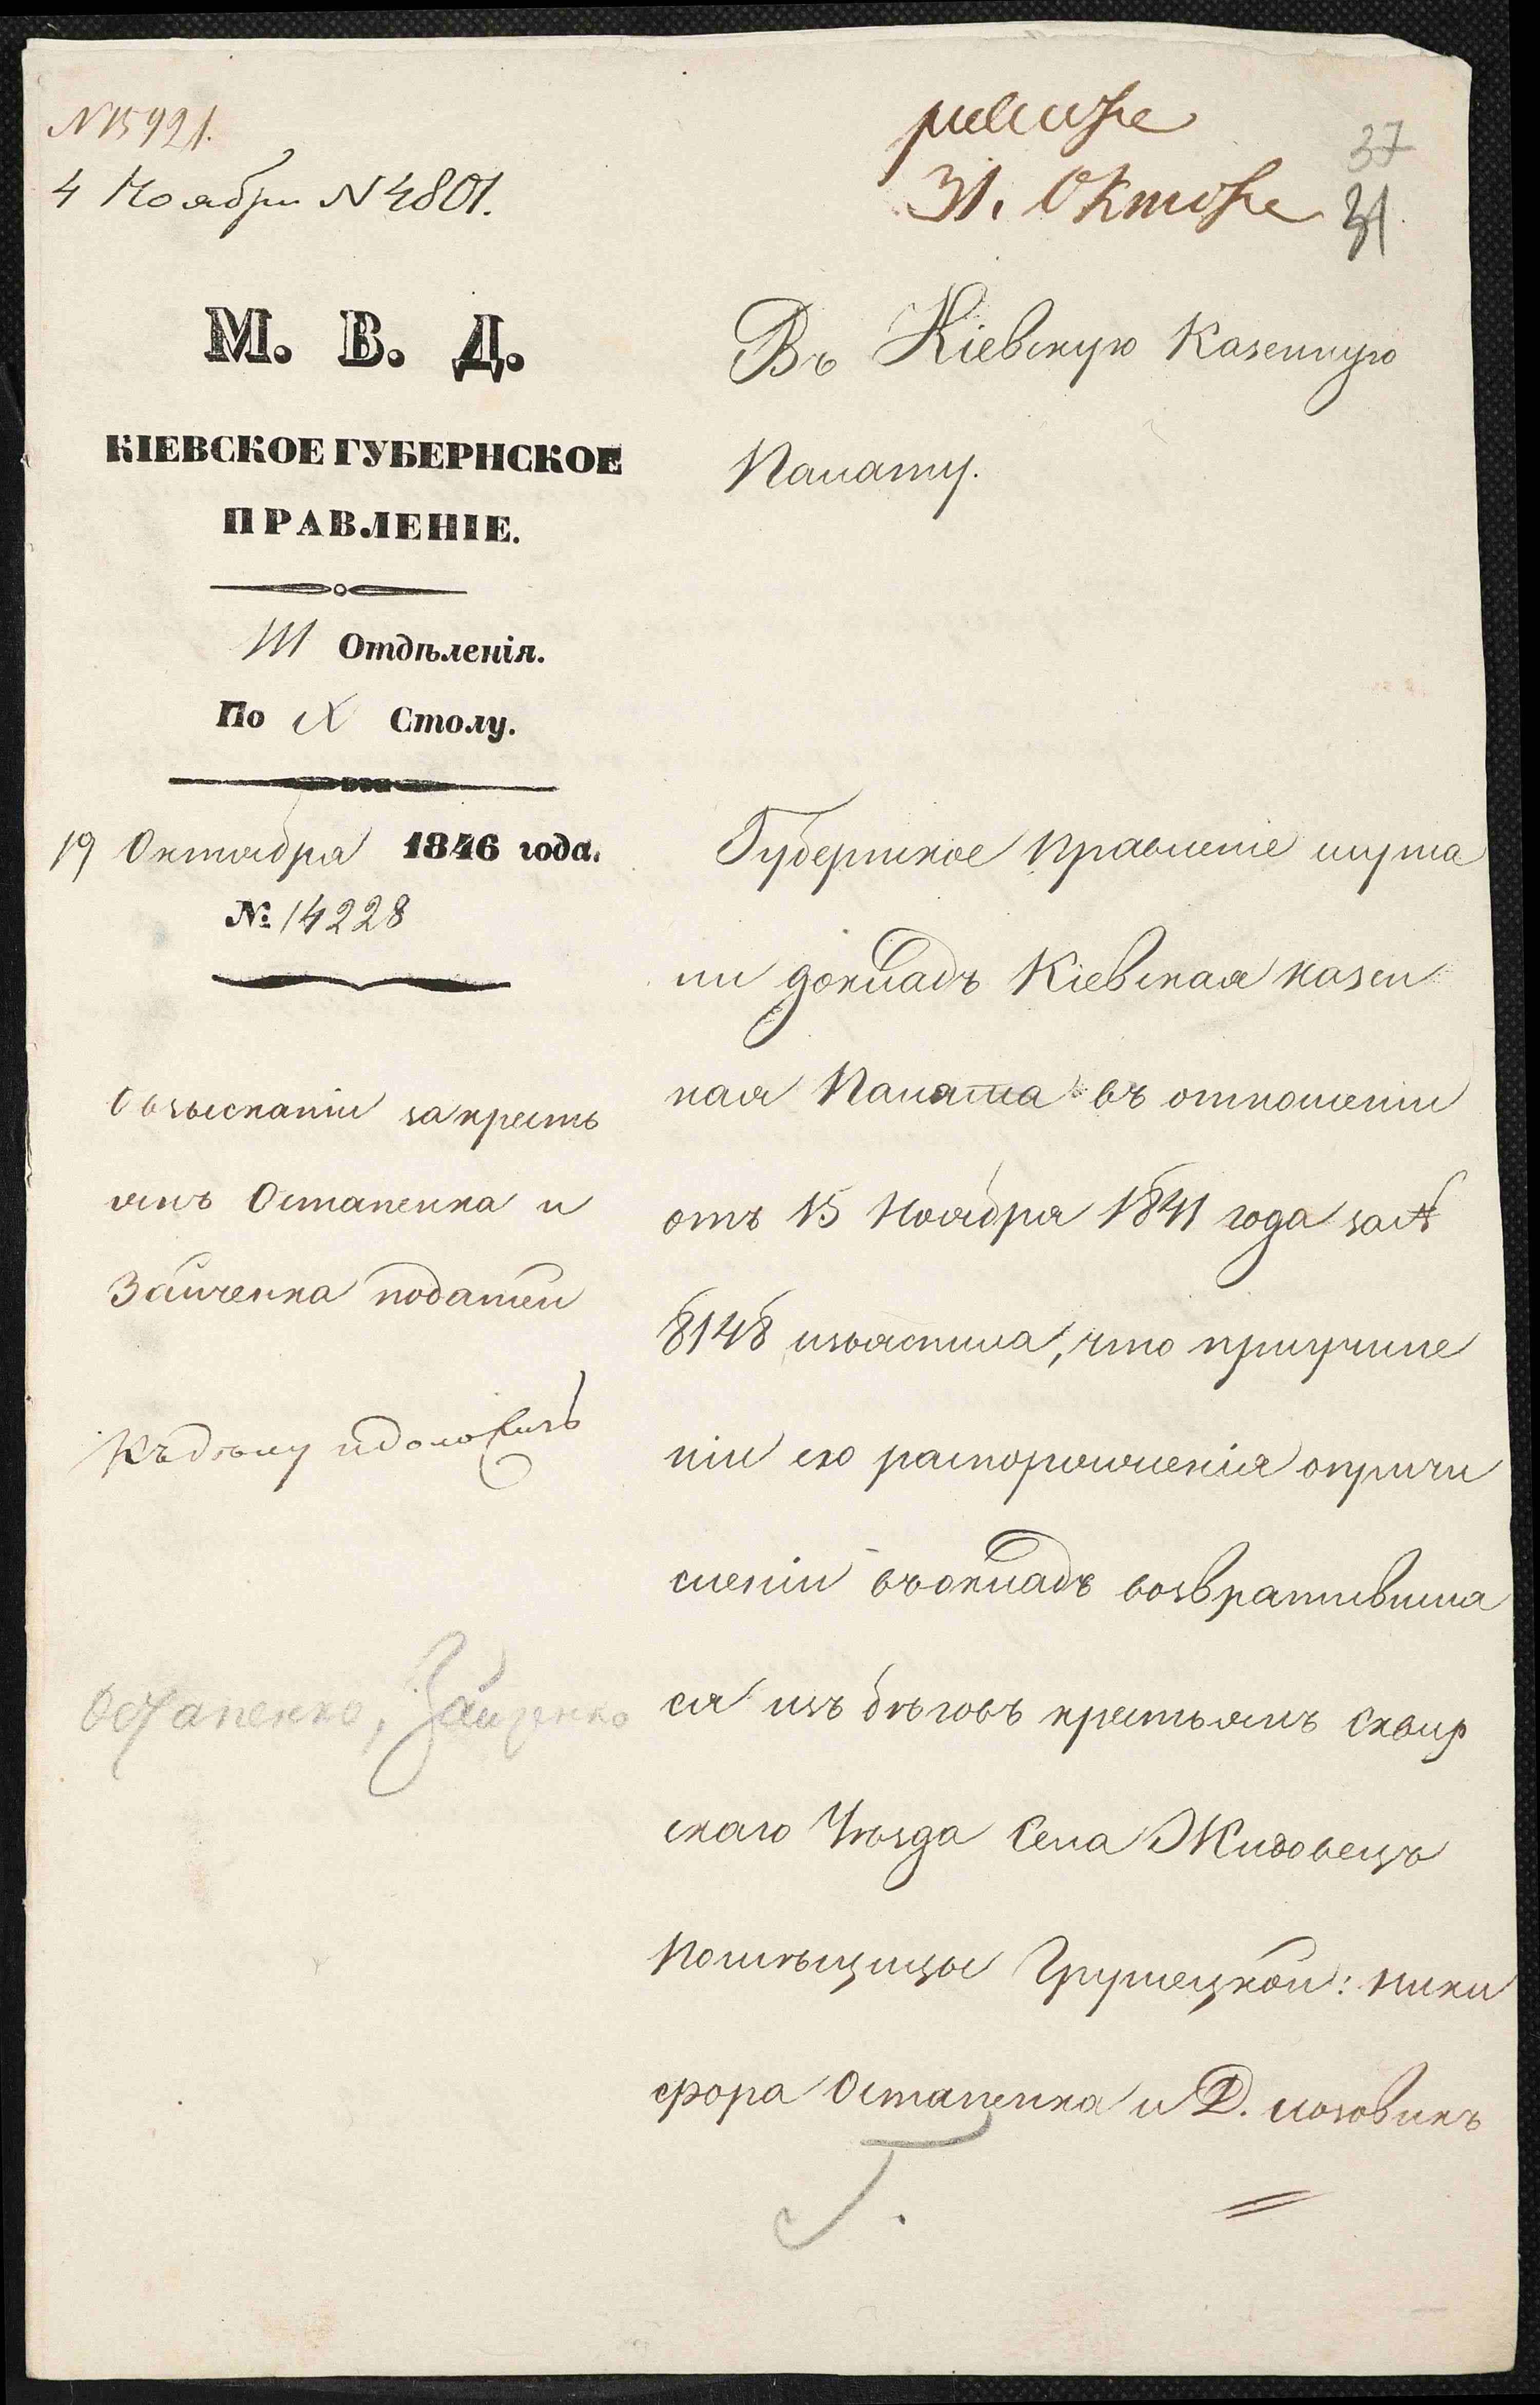 N 15921.
4 Ноября N 4801.
31. Октяб
37
31.
М. В. Д.
КІЕВСКОЕ ГУБЕРНСКОЕ
ПРАВЛЕНІЕ.
III Отдѣленія.
По X Столу.
19 Октября 1846 года.
№ 14228
О взысканіи за кресть
янъ Остапенка и
Зайченка податей
Къ дѣлу и доложить
Остапенко, Зайченко
Въ Кіевскую Казенную
Палату.
Губернское Правленіе слуша
ли докладъ Кіевская казен
ная Палата въ отношеніи
отъ 15 Ноября 1841 года за N
8148 изъяснила, что при учине
ніи ею распоряженія о причи
сленіи въ окладъ возвративших
ся изъ бѣговъ крестьянъ Сквир
скаго Уѣзда Села Жидовецъ
Помѣщицы Грушецкой: Ники
фора Остапенка и Д. Лозовикъ
Г.